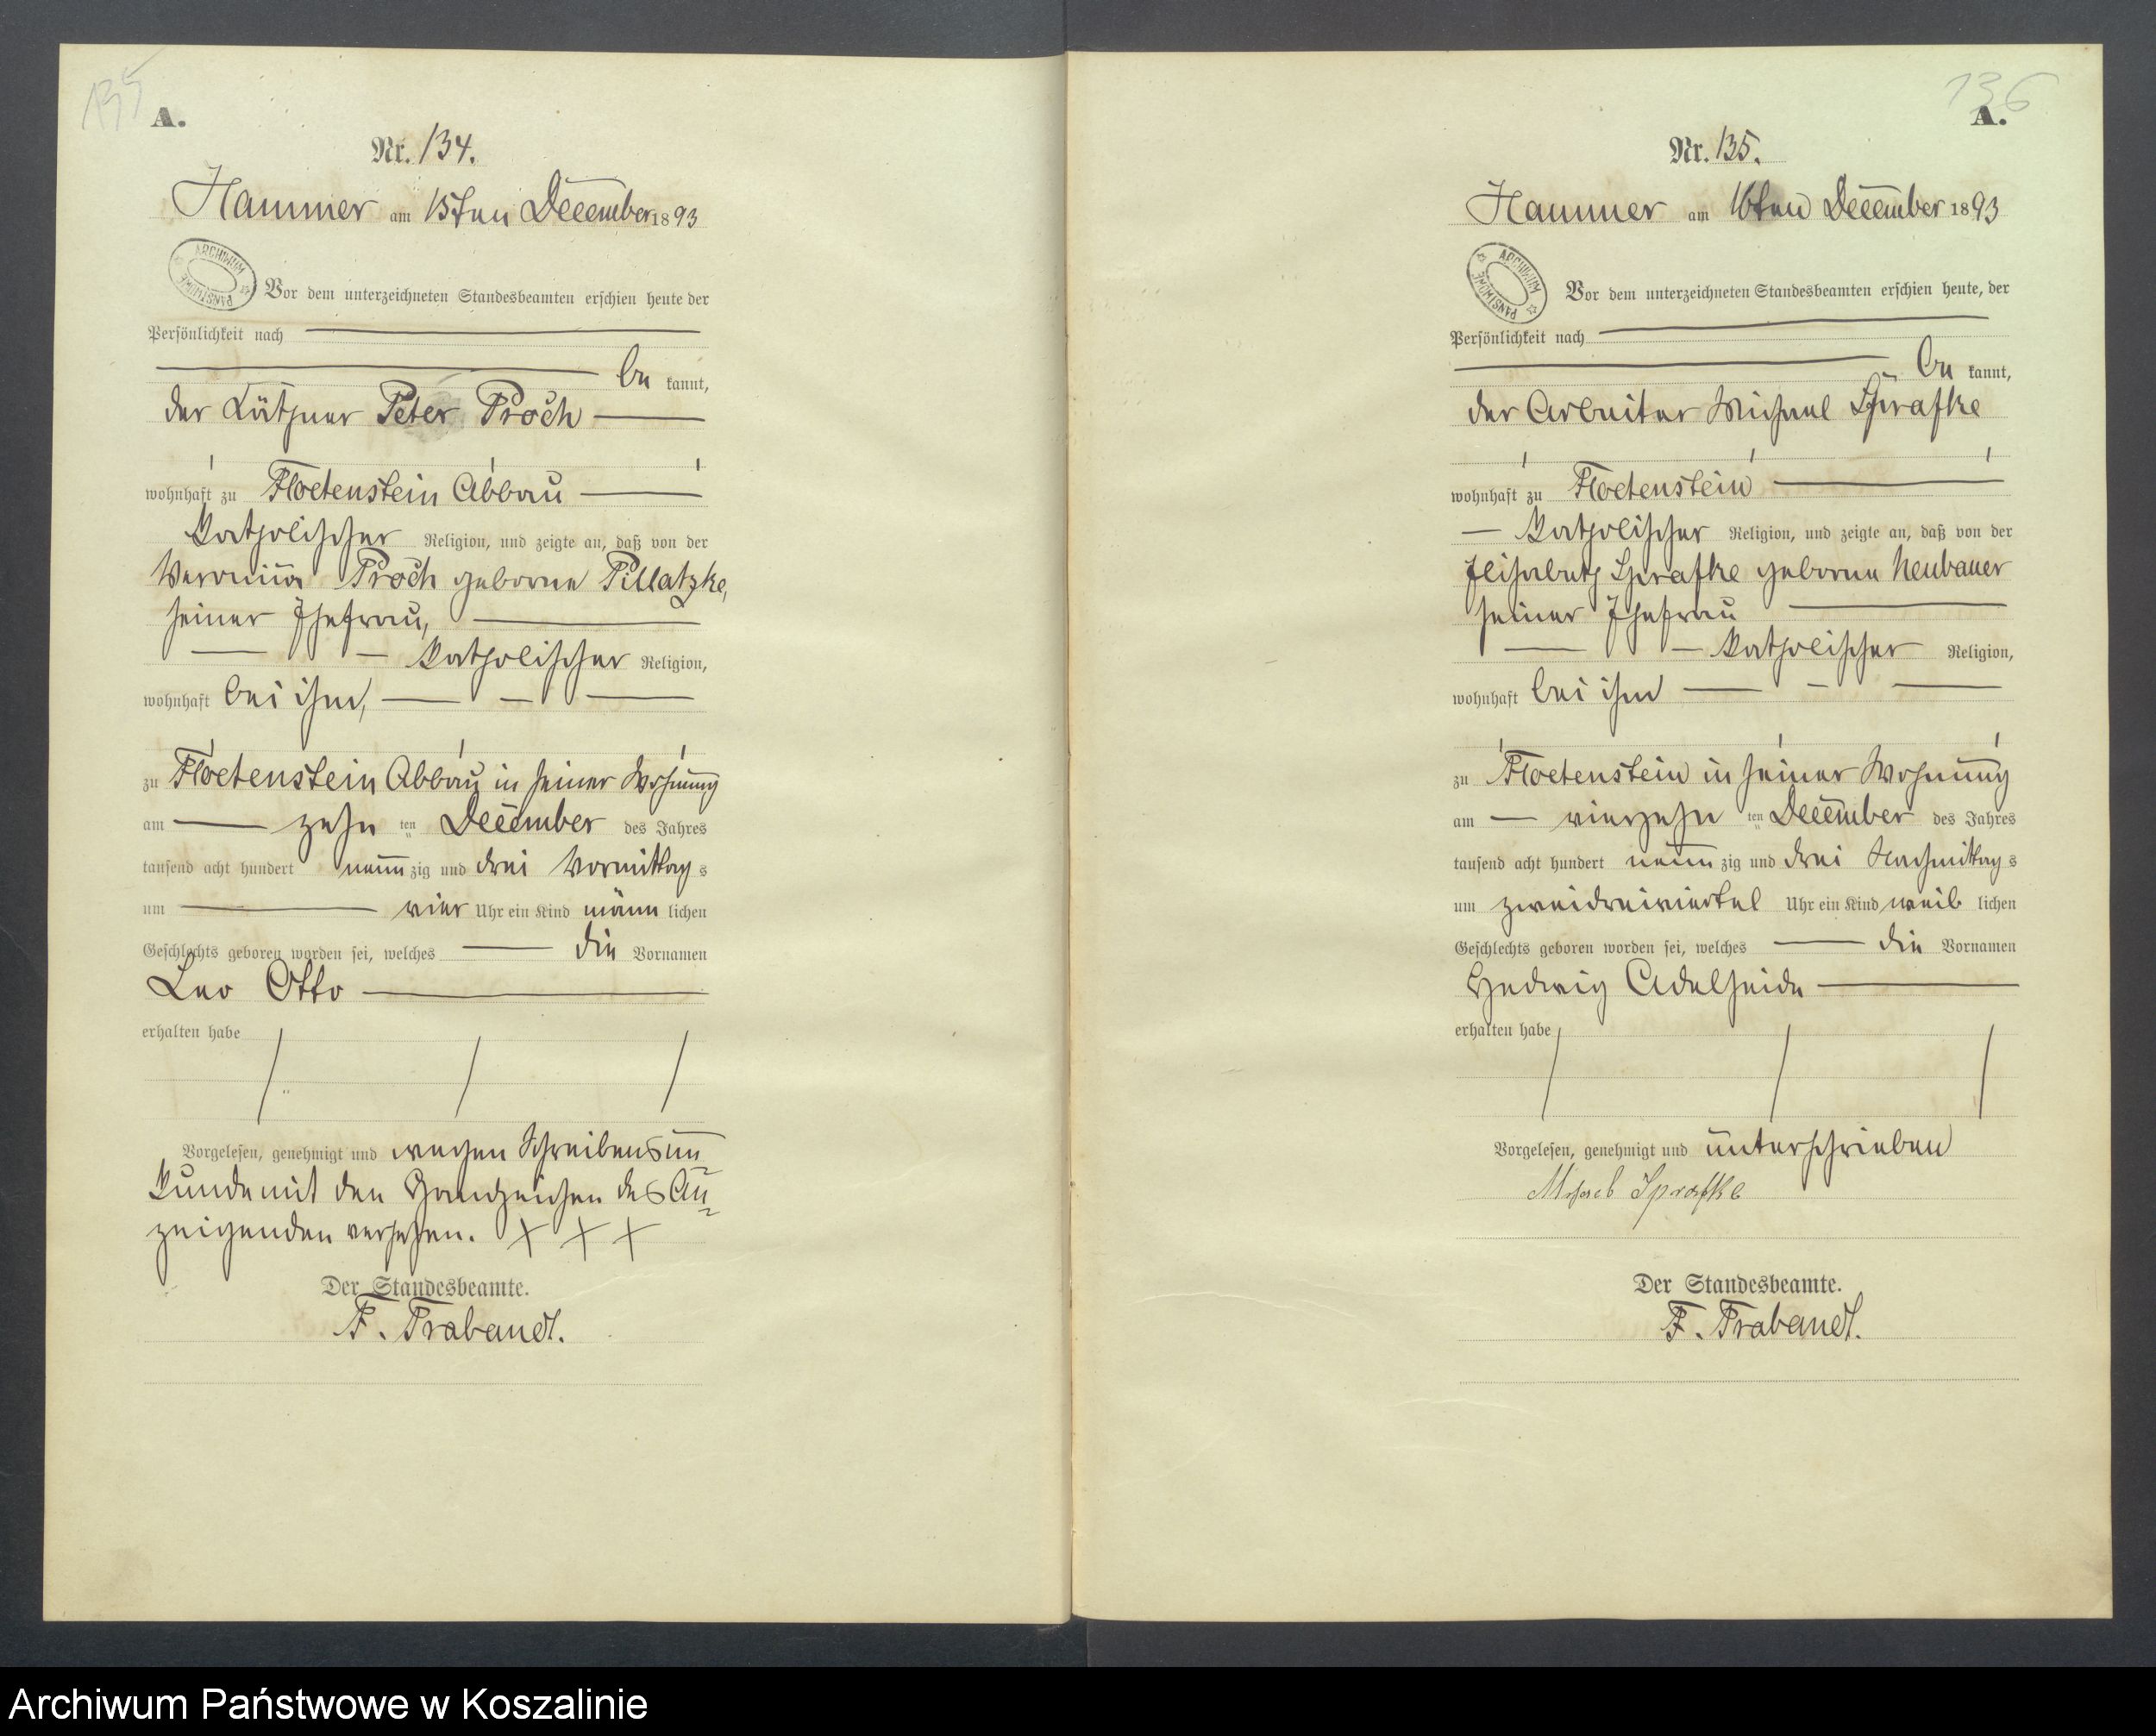 135
A.
Nr. 134.
Hammer am 15ten December 1893
ARCHIWUM PAŃSTWOWE
Vor dem unterzeichneten Standesbeamten erschien heute der
Persönlichkeit nach
be kannt,
der Käthner Peter Proch
wohnhaft zu Floetenstein Abbau
katholischer Religion, und zeigte an, daß von der
Veronica Proch geborne Pillatzke,
seiner Ehefrau,
katholischer Religion,
wohnhaft bei ihm,
zu Floetenstein Abbau in seiner Wohnung
am zehn ten December des Jahres
tausend acht hundert neun zig und drei Vormittag s
um vier Uhr ein Kind männ lichen
Geschlechts geboren worden sei, welches die Vornamen
Leo Otto
erhalten habe
Vorgelesen, genehmigt und wegen Schreibensun-
kunde mit den Handzeichen des An-
zeigenden versehen. + + +
Der Standesbeamte.
F. Trabandt.
136
A.
Nr. 135.
Hammer am 16ten December 1893
ARCHIWUM PAŃSTWOWE
Vor dem unterzeichneten Standesbeamten erschien heute, der
Persönlichkeit nach
be kannt,
der Arbeiter Michael Sprafke
wohnhaft zu Floetenstein
katholischer Religion, und zeigte an, daß von der
Elisabeth Sprafke geborne Neubauer
seiner Ehefrau
katholischer Religion,
wohnhaft bei ihm
zu Floetenstein in seiner Wohnung
am vierzehn ten December des Jahres
tausend acht hundert neun zig und drei Nachmittag s
um zweidreiviertel Uhr ein Kind weib lichen
Geschlechts geboren worden sei, welches die Vornamen
Hedwig Adelheide
erhalten habe
Vorgelesen, genehmigt und unterschrieben
Sprafke
Der Standesbeamte.
F. Trabandt.
Archiwum Państwowe w Koszalinie